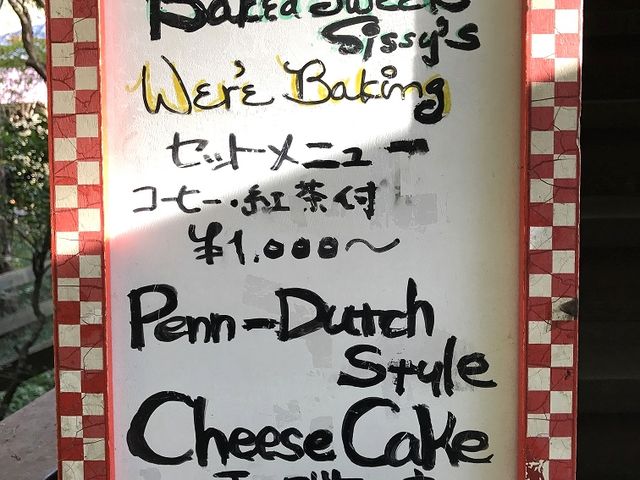 Baked Sweets
Sissy's
Wer'e Baking
セットメニュー
コーヒー・紅茶付
¥1.000〜
Penn-Dutch
Style
Cheese Cake